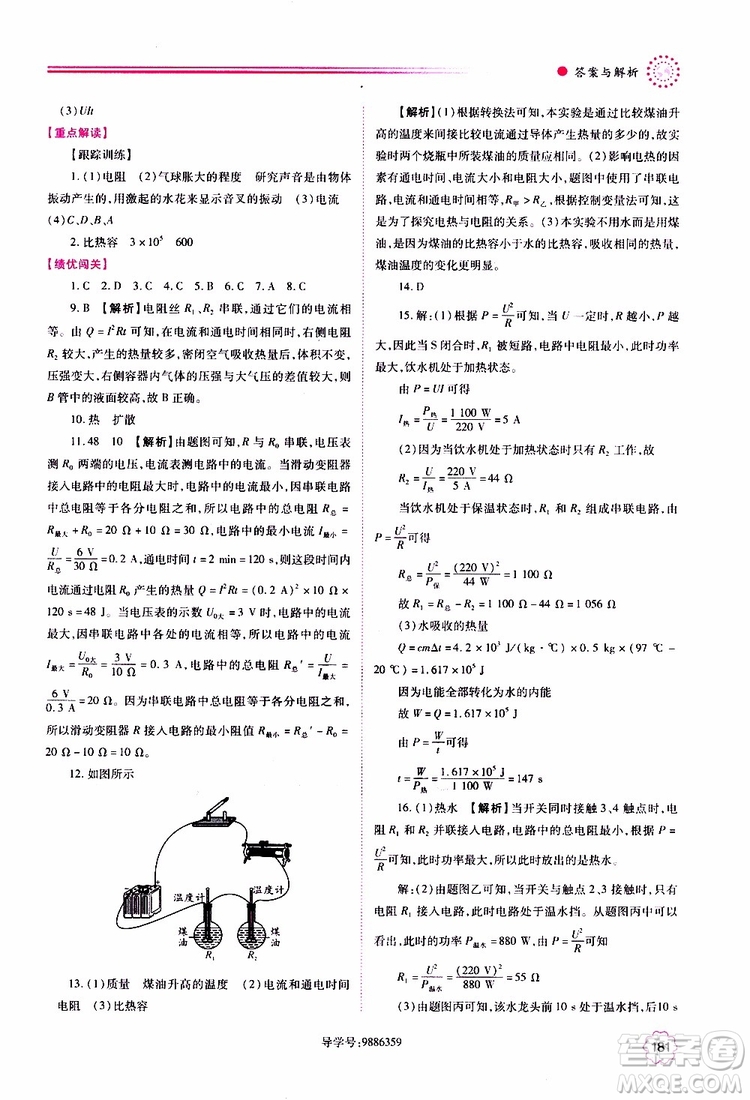 答案与解析
(3)UIt
【重点解读】
【跟踪训练】
1.(1)电阻 (2)气球胀大的程度 研究声音是由物体
振动产生的,用激起的水花来显示音叉的振动 (3)电流
(4)C、D、A
2.比热容 3×10⁵ 600
【绩优闯关】
1.C 2.D 3.A 4.B 5.C 6.D 7.A 8.A
9.B 【解析】电阻丝 R₁、R₂ 串联,通过它们的电流相
等。由 Q=I²Rt 可知,在电流和通电时间相同时,右侧电阻
R₂ 较大,产生的热量较多,密闭空气吸收热量后体积膨胀,
压强变大,右侧容器内气体的压强与大气压的差值较大,则
B 管中的液面较高,故 B 选项正确。
10.热 扩散
11.48 10 【解析】由题图可知,R 与 R₀ 串联,电压表
测 R₀ 两端的电压,电流表测电路中的电流。当滑动变阻器
接入电路中的电阻最大时,电路中的电流最小,因串联电路
中总电阻等于各分电阻之和,所以电路中的总电阻 R总=
R最大+R₀=20 Ω+10 Ω=30 Ω,电路中的最小电流 I最小=
U/R总=6 V/30 Ω=0.2 A,通电时间 t=2 min=120 s,则这段时间内
电流通过 R₀ 产生的热量 Q=I²Rt=(0.2 A)²×10 Ω×
120 s=48 J。当电压表的示数 U₀大=3 V 时,电路中的电流
最大,因串联电路中各处的电流相等,电路中的最大电流
I最大=U₀大/R₀=3 V/10 Ω=0.3 A,电路中的总电阻 R总′=U/I最大=
6 V/0.3 A=20 Ω。因为串联电路中总电阻等于各分电阻之和,
所以滑动变阻器 R 接入电路的最小阻值 R最小=R总′-R₀=
20 Ω-10 Ω=10 Ω。
12.如图所示
温度计
温度计
煤油
煤油
R₁
R₂
13.(1)质量 煤油升高的温度 (2)电流和通电时间
电阻 (3)比热容
【解析】(1)根据转换法可知,本实验是通过比较煤油升
高的温度来间接比较电流通过导体产生热量的多少的,故实
验中两个烧瓶中所装煤油的质量应相同。(2)影响电热的因
素有通电时间、电流大小和电阻大小,题图中使用了串联电
路,R甲>R乙,根据控制变量法可知,这是
为了探究电热与电阻的关系。(3)本实验不用水而是用煤
油,是因为煤油的比热容小于水的比热容,吸收相同的热量,
煤油温度的变化更明显。
14.D
15.解:(1)根据 P=U²/R 可知,当 U 一定时,R 越小,P 越
大,故当 S 闭合时,R₁ 被短路,电路中电阻最小,此时功率最
大,饮水机处于加热状态。
由 P=UI 可得
I热=P热/U=1 100 W/220 V=5 A
(2)因为当饮水机处于加热状态时只有 R₂ 工作,故
R₂=U/I热=220 V/5 A=44 Ω
当饮水机处于保温状态时,R₁ 和 R₂ 组成串联电路,由
P=U²/R可得
R总=U²/P保=(220 V)²/44 W=1 100 Ω
故 R₁=R总-R₂=1 100 Ω-44 Ω=1 056 Ω
(3)水吸收的热量
Q=cmΔt=4.2×10³ J/(kg·℃)×0.5 kg×(97 ℃-
20 ℃)=1.617×10⁵ J
因为电能全部转化为水的内能
故 W=Q=1.617×10⁵ J
由 P=W/t可得
t=W/P热=1.617×10⁵ J/1 100 W=147 s
16.(1)热水 【解析】当开关同时接触 3、4 触点时,电
阻 R₁ 和 R₂ 并联接入电路,电路中的总电阻最小,由 P=
U²/R可知,此时功率最大,所以此时放出的是热水。
解:(2)由题图乙可知,当开关与触点 2、3 接触时,只有
电阻 R₁ 接入电路,此时处于温水挡。从题图丙中可以
看出,此时的功率 P温水=880 W,由 P=U²/R可知
R₁=U²/P温水=(220 V)²/880 W=55 Ω
(3)由题图丙可知,该水龙头前 10 s 处于温水挡,后 10 s
导学号:9886359
181
答案圈
MXQE.COM